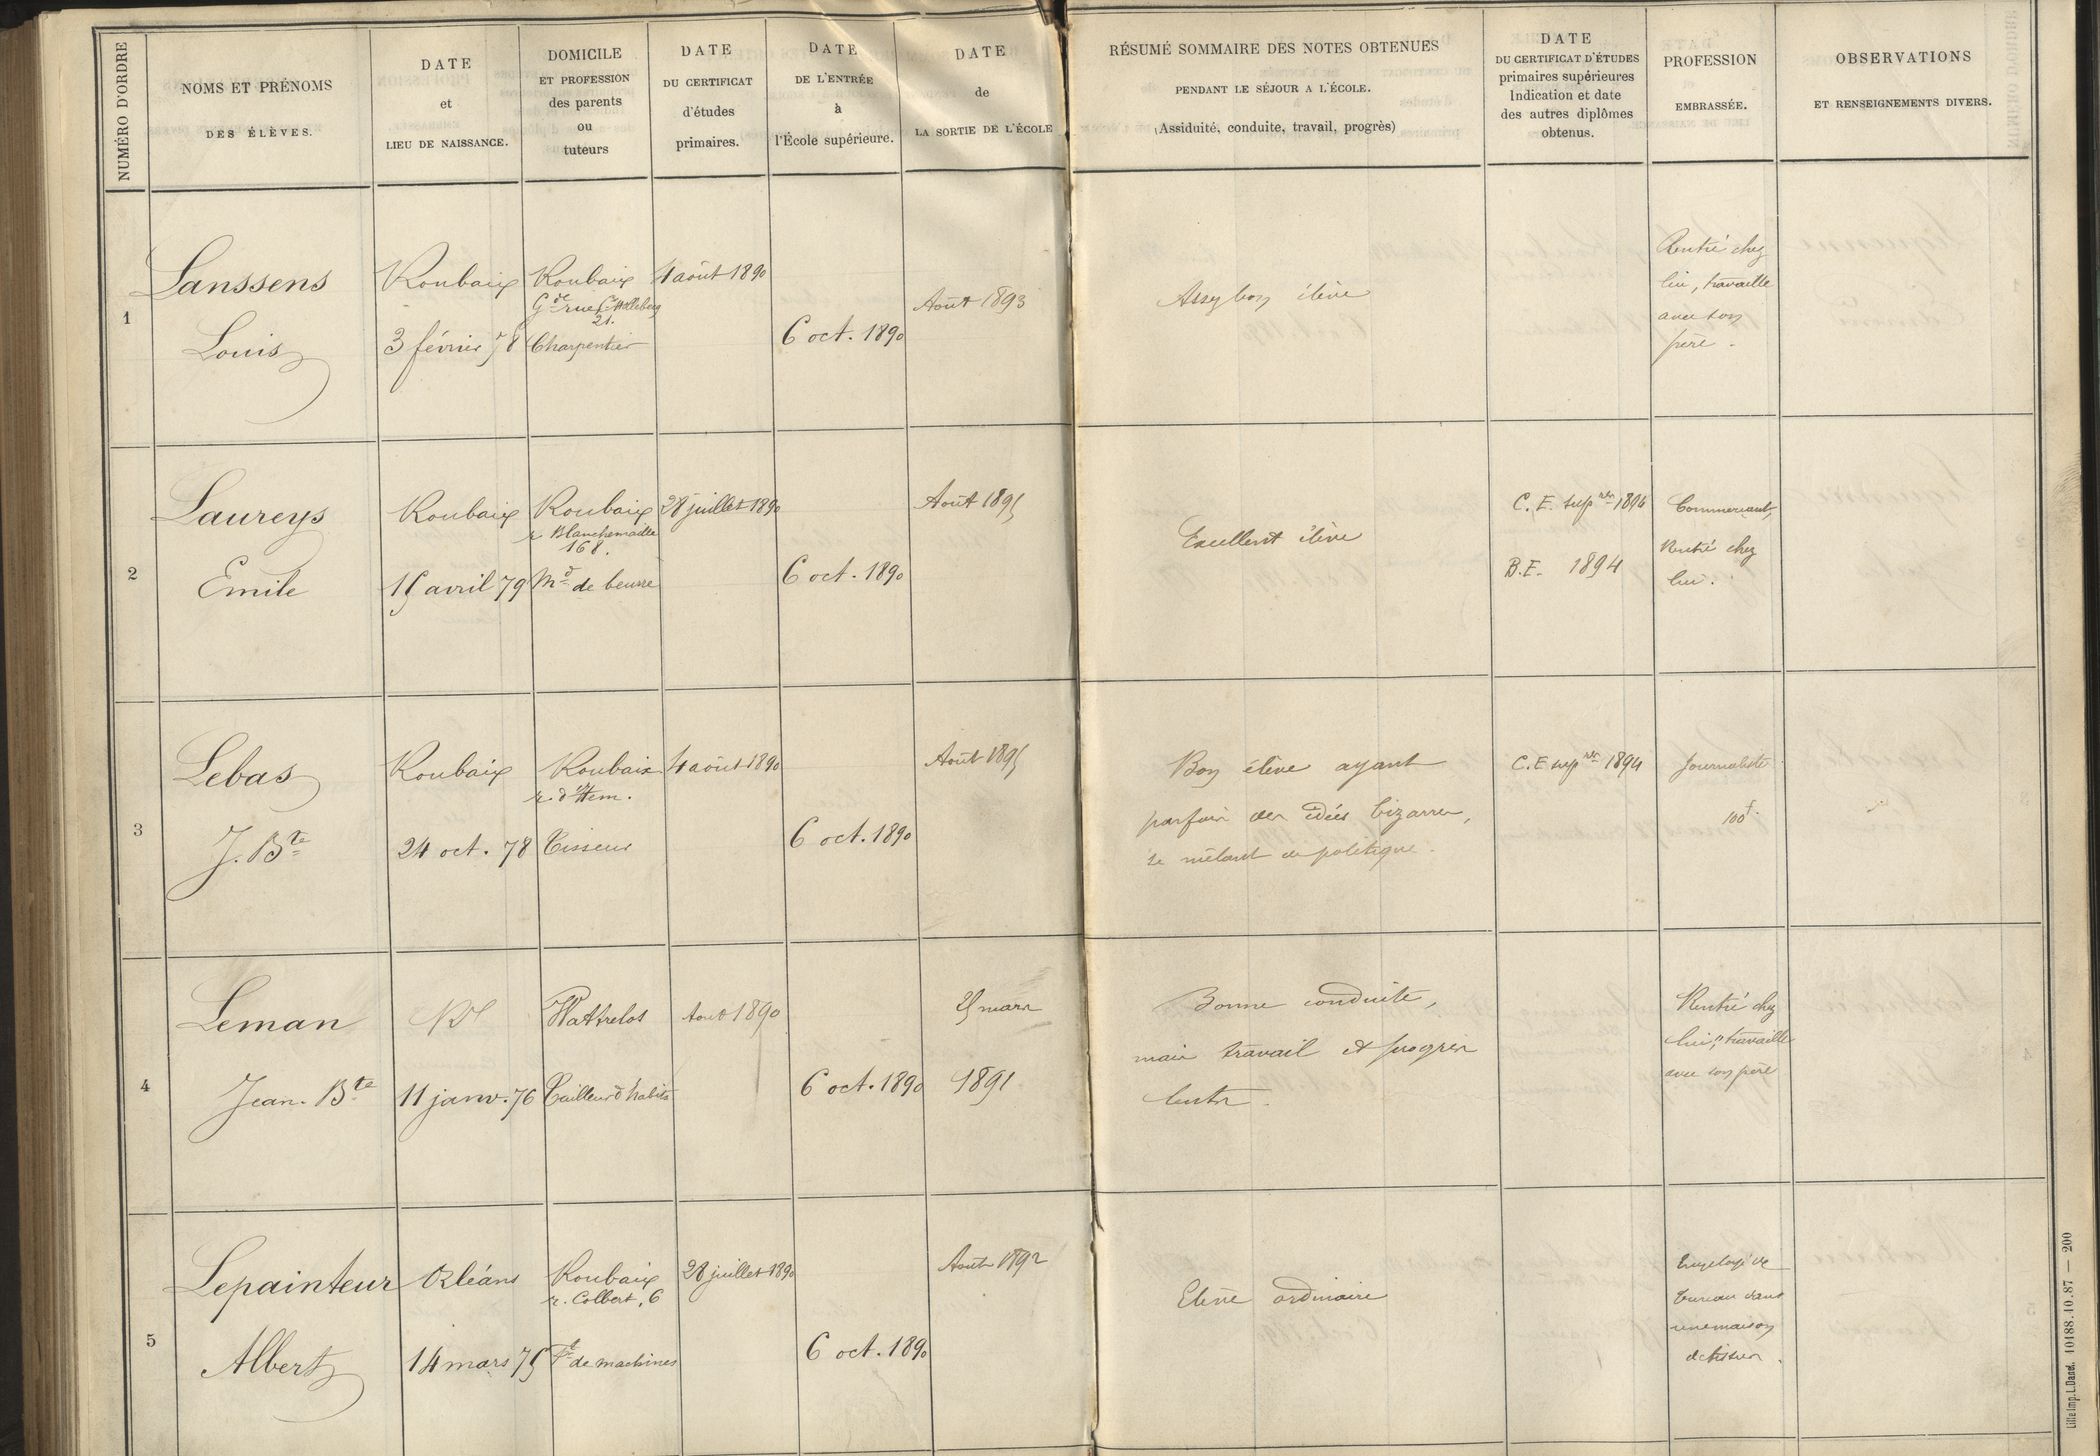 NUMÉRO D'ORDRE
NOMS ET PRÉNOMS
DES ÉLÈVES.
DATE
et
LIEU DE NAISSANCE.
DOMICILE
ET PROFESSION
des parents
ou
tuteurs
DATE
DU CERTIFICAT
d'études
primaires.
DATE
DE L'ENTRÉE
à
l'École supérieure.
DATE
de
LA SORTIE DE L'ÉCOLE
RÉSUMÉ SOMMAIRE DES NOTES OBTENUES
PENDANT LE SÉJOUR A L'ÉCOLE.
(Assiduité, conduite, travail, progrès)
DATE
DU CERTIFICAT D'ÉTUDES
primaires supérieures
Indication et date
des autres diplômes
obtenus.
PROFESSION
EMBRASSÉE.
OBSERVATIONS
ET RENSEIGNEMENTS DIVERS.
1
Lanssens
Louis
Roubaix
3 février 78
Roubaix
Gde rue
21.
Charpentier
4 août 1890
6 oct. 1890
Août 1893
Assez bon élève
Rentré chez
lui, travaille
avec son
père.
2
Laureys
Emile
Roubaix
15 avril 79
Roubaix
r Blanchemaille
168.
Md de beurre
28 juillet 1890
6 oct. 1890
Août 1895
Excellent élève
C. E. supres 1894
B.E. 1894
Commerçant,
Rentré chez
lui.
3
Lebas
J. Bte
Roubaix
24 oct. 78
Roubaix
r. d'Hem.
Tisseur
4 août 1890
6 oct. 1890
Août 1895
Bon élève ayant
parfois des idées bizarres,
se mêlant de politique.
C.E supres 1894
Journaliste
100f.
4
Leman
Jean-Bte
11 janv. 76
Wattrelos
Tailleur d'habits
Aout 1890
6 oct. 1890
25 mars
1891
Bonne conduite,
mais travail et progrès
lents.
Rentré chez
lui, travaille
avec son père
5
Lepainteur
Albert
Orléans
14 mars 75
Roubaix
r. Colbert, 6
de machines
28 juillet 1890
6 oct. 1890
Août 1892
Elève ordinaire
Employé de
bureau dans
une maison
de tissus.
Lille Imp. L. Danel. 10188.10.87 — 200